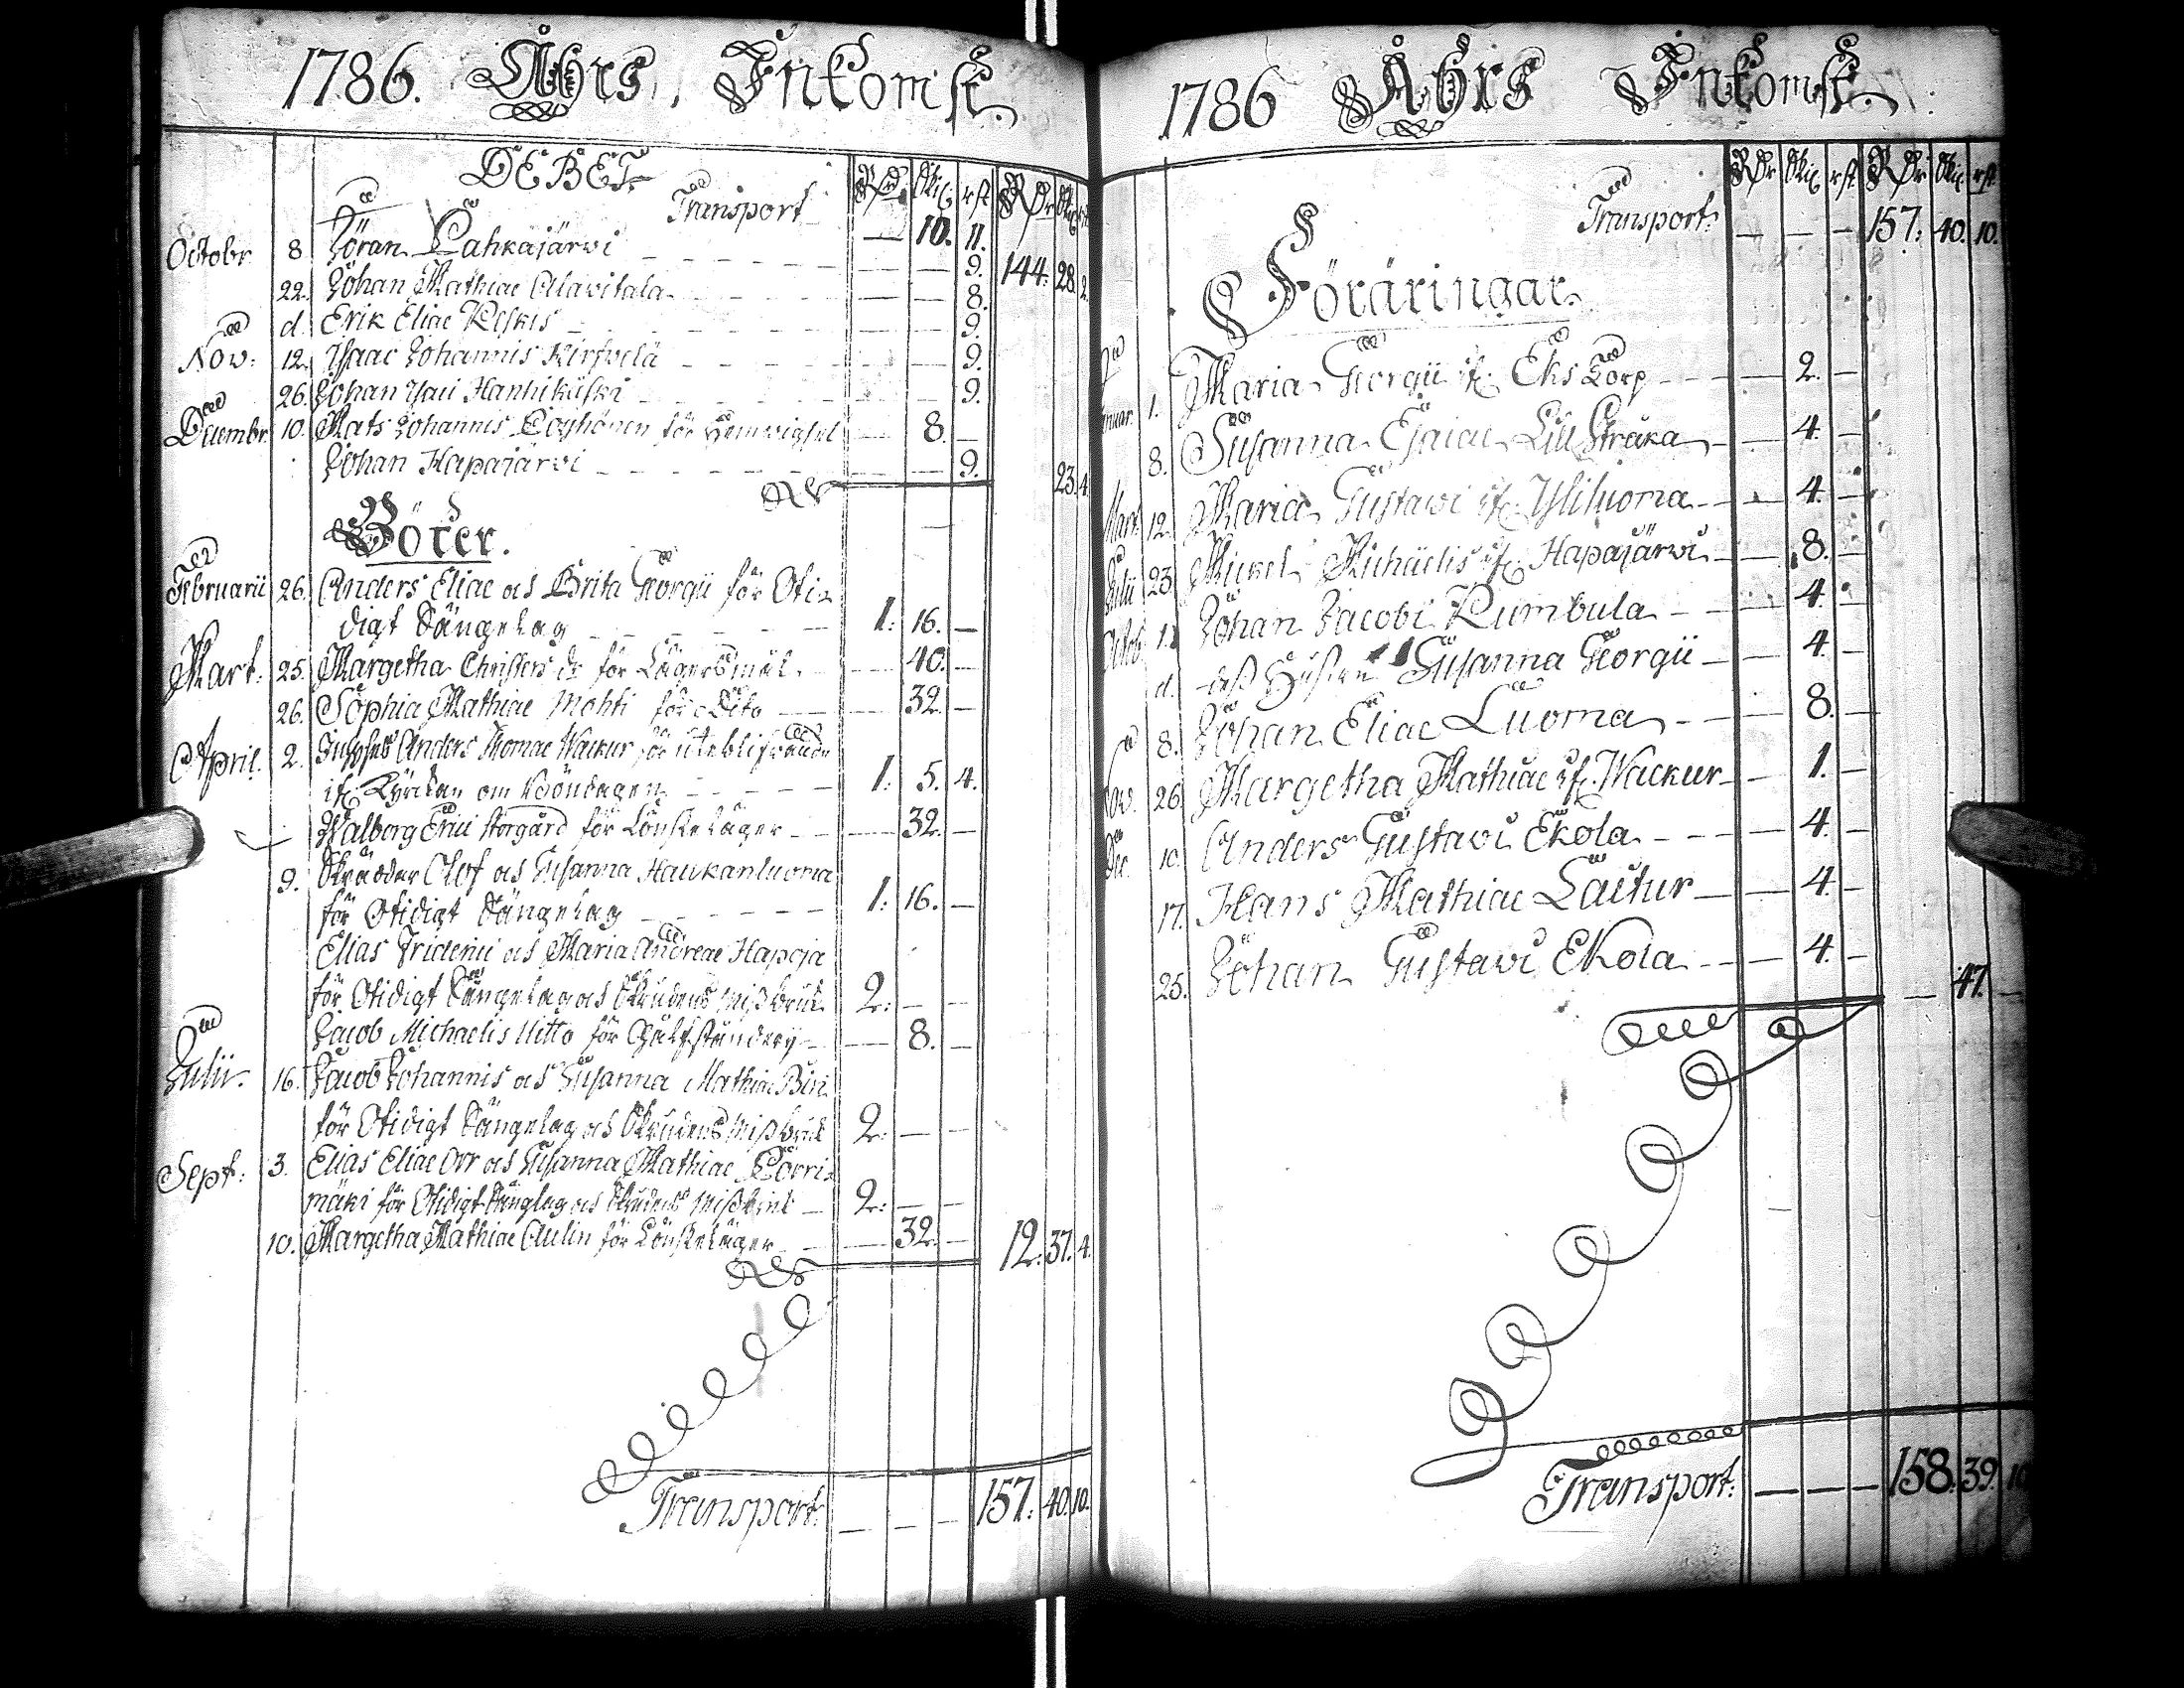 1786. Åhrs Inkomst.
DEBET.
Rdr Skil. rst Rdr Skil. rst
Transport – 10. 11. 144. 28. 2.
Octobr. 8 Jöran Lahkajärwi – – 9.
22. Johan Mathiae Alawitala – – 8.
d. Erik Eliae Keskis – – 9.
Now: 12. Isaac Johannis Kirfwelä – – 9.
26. Johan Isaci Hanhikuski – – 9.
Decembr 10. Mats Johannis för Hemwigsel – 8. –
Johan Hapajärwi – – 9. 23. 4.
Böter.
Februarii 26. Anders Eliae och Brita Georgii för Oti-
digt Sängelag 1: 16. –
Mart: 25. Margetha Christers dr för Lägersmål – 40. –
26. Sophia Mathiae Mohti för Dito – 32. –
April. 2. Anders Thomae Wackur för uteblifwande
if. Kyrckan om Söndagen 1: 5. 4.
Walborg Erici Storgård för Lönskeläger – 32. –
9. Skräddar Olof och Susanna Haukanluoma
för Otidigt Sängelag 1: 16. –
Elias Friderici och Maria Andreae Hapoja
för Otidigt Sängelag och Skrudens Missbruk 2: – –
Jacob Michaelis Hitto för – 8. –
Julii. 16. Jacob Johannis och Susanna Mathiae
för Otidigt Sängelag och Skrudens Missbruk 2: – –
Sept: 3. Elias Eliae Orr och Susanna Mathiae Pörri-
mäki för Otidigt Sänglag och Skrudens Missbruk 2: – –
10. Margetha Mathiae Aulin för Lönskeläger – 32. – 12. 37. 4.
Transport: – – – 157: 40. 10.
1786 Åhrs Inkomst.
Rdr Skil. rst Rdr Skil. rst
Transport: – – – 157: 40. 10.
Föräringar.
1. Maria Georgii if. Eks Torp – 2. –
8. Susanna Esaiae Lill Stråka – 4. –
Mart. 12. Maria Gustawi if. Ylihuoma – 4. –
Julii 23. Mickel Michaelis if. Hapajärwi – 8. –
Octob. 1. Johan Jacobi Rumbula – 4. –
d. dess Hustru Susanna Georgii – 4. –
8. Johan Eliae Luoma – 8. –
Now. 26. Margetha Mathiae if. Wackur – 1. –
Dec. 10. Anders Gustawi Ekola – 4. –
17. Hans Mathiae Lactur – 4. –
25. Johan Gustawi Ekola – 4. – – 47. –
Transport: – – – 158. 39. 10